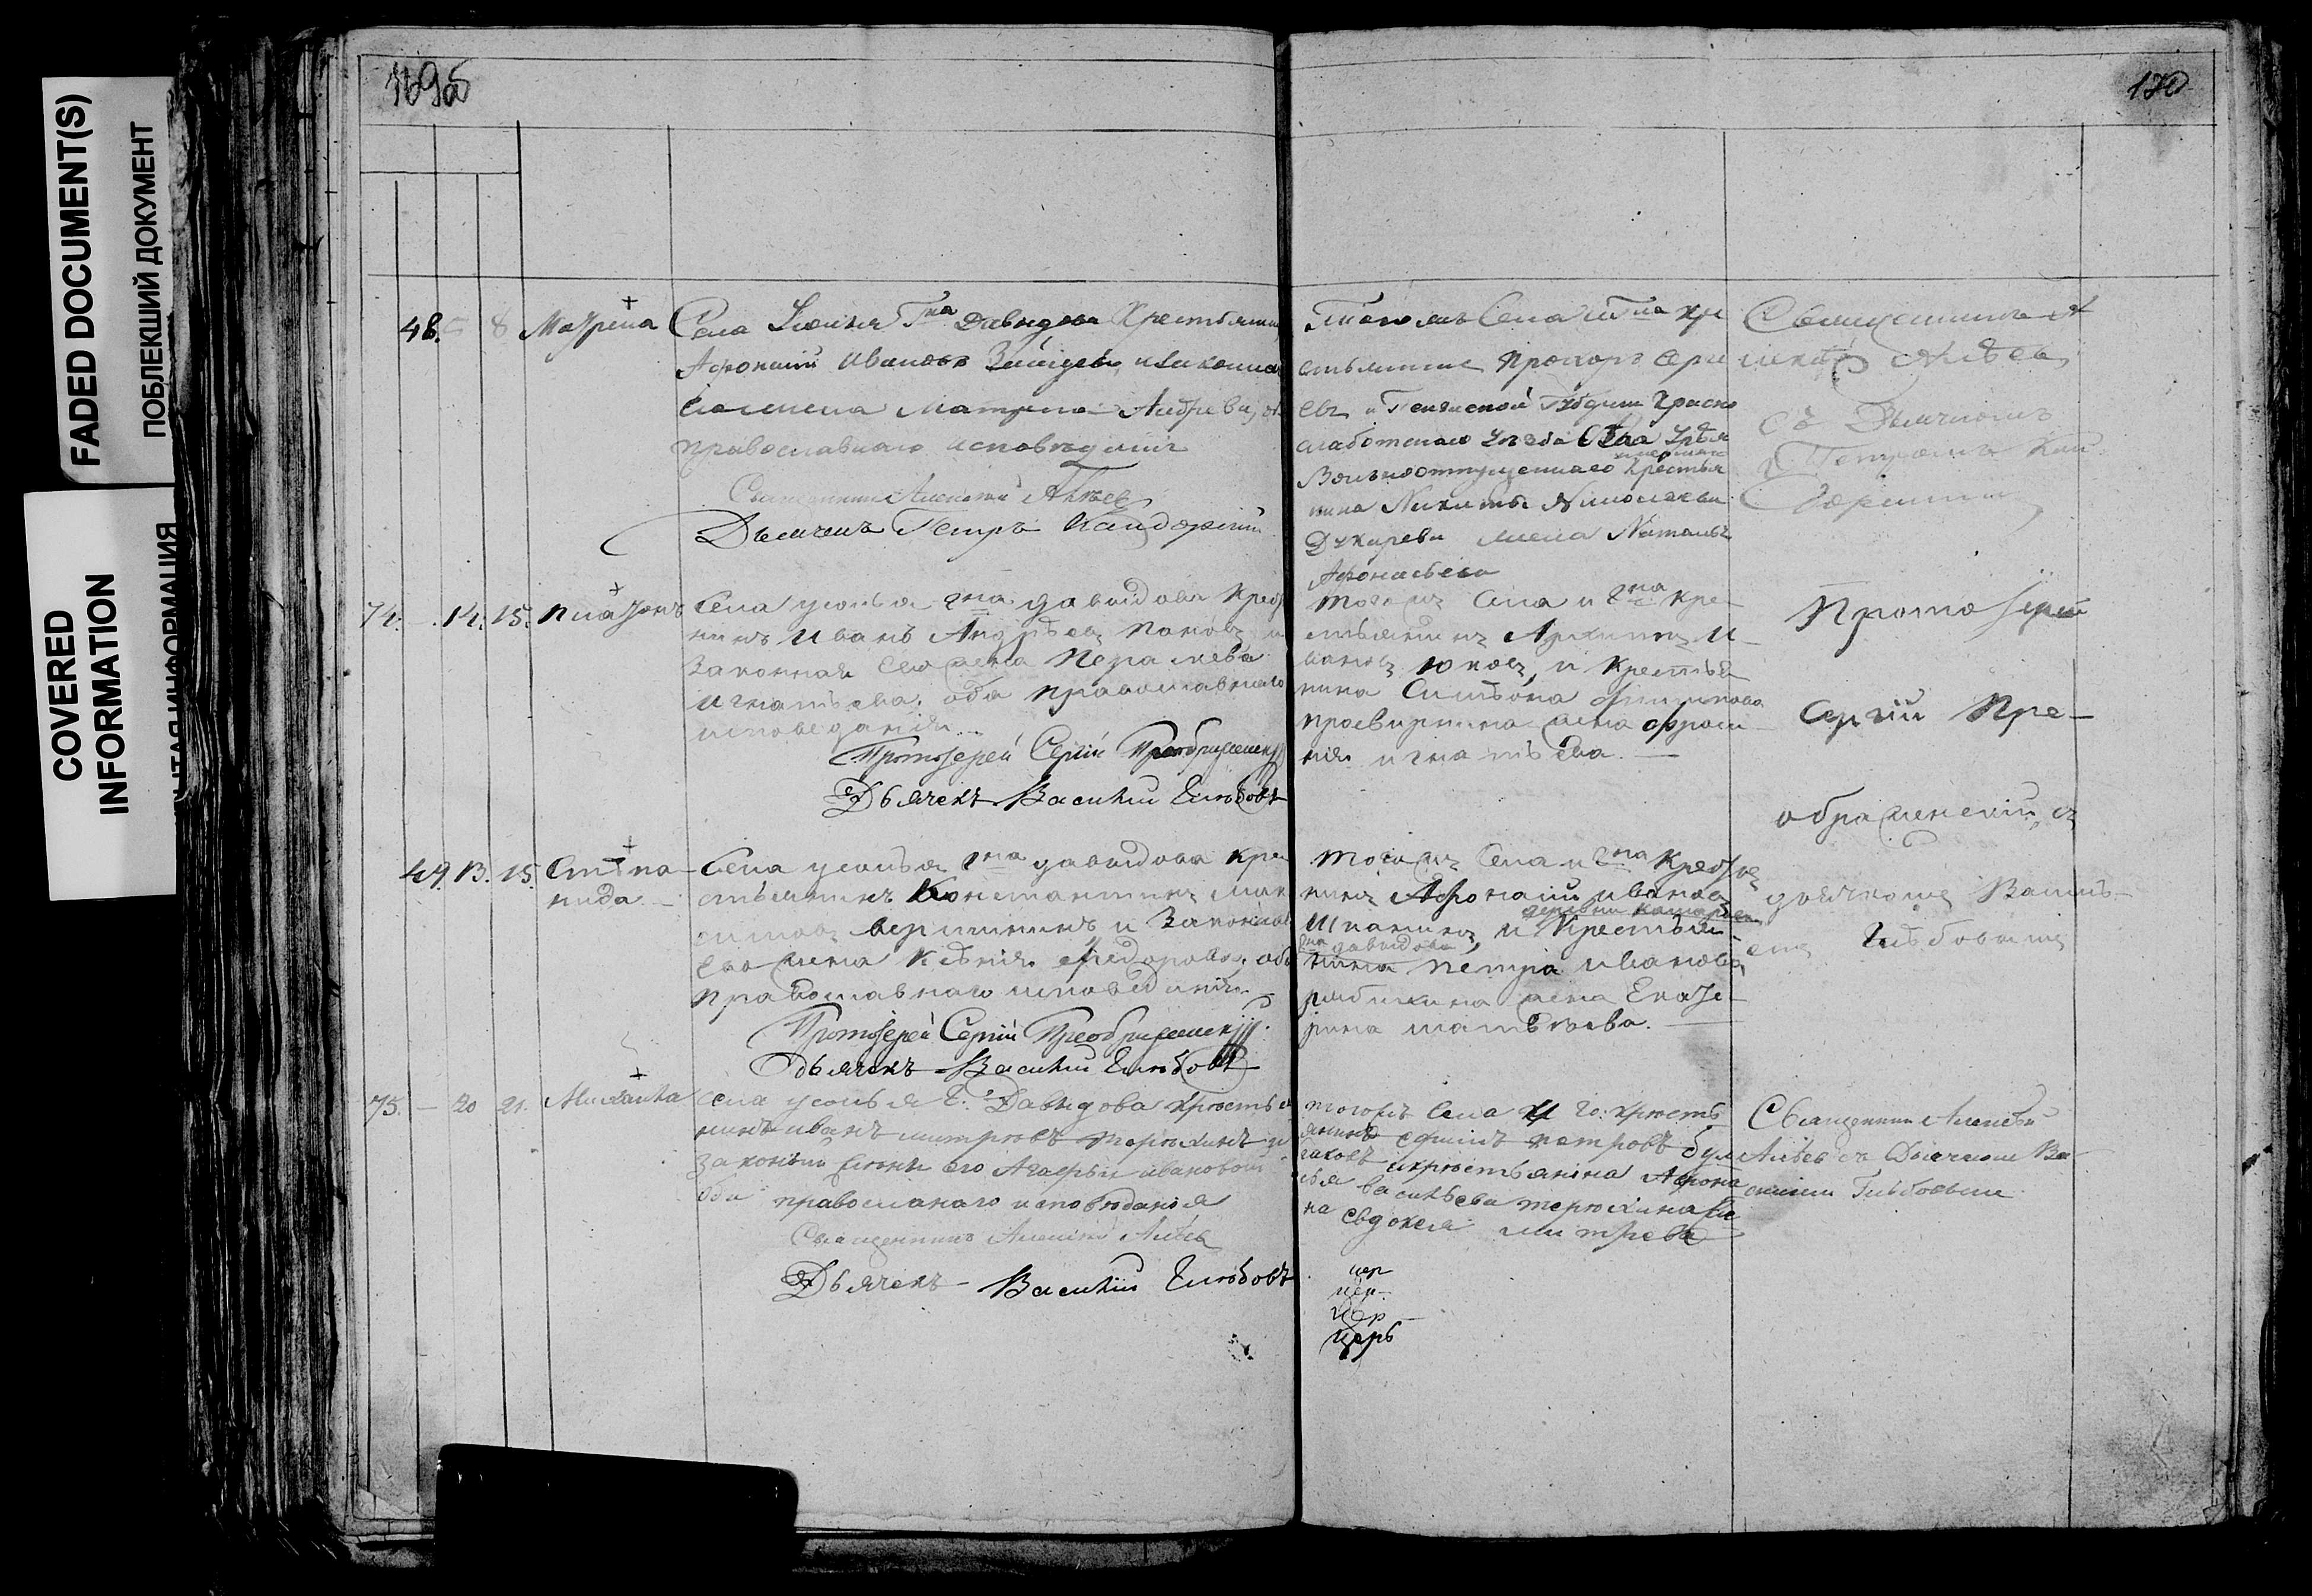 FADED DOCUMENT(S)
ПОБЛЕКШИЙ ДОКУМЕНТ
COVERED
INFORMATION
ИНФОРМАЦИЯ
170
48. 8 Матрена
Села Гна Давыдова Крестьянинъ
Афонасий Ивановъ и законная
его жена Матрена Андреева, оба
православнаго исповѣдания
Священникъ Алексѣй Алѣевъ
Дьячекъ Петръ Кандорский
Того жъ Села и Гна кре
стьянинъ Прохоръ Серге
евъ и Пензенской Губернии Красно
слабоцкаго уѣзда Села
Вольноотпущеннаго крестья
нина Никиты Николаева
жена Наталья
Афонасьева
Священникъ А
лексѣй Алѣевъ
съ Дьячкомъ
Петромъ Кан
дорскимъ
74. 14. 15. Платонъ
Села усолья Гна давыдова Крестья
нинъ Иванъ Андрѣевъ Поповъ и
Законная Его жена Параскева
Игнатьева. оба православнаго
исповеданія
Протоіерей Сергій Преображенскій
Дьячекъ Василий Глѣбовъ
того жъ Села и Гна кре-
стьянинъ Архипъ И-
вановъ Юновъ, и крестья
нина Симіона Филипова
просвирнина жена Офроси
нія игнатьева.
Протоіерей
Сергій Пре-
ображенский съ
49. 13. 15. Степа-
нида
Села усолья Гна давыдова Кре
стьянинъ Константинъ Мак
симовъ вершининъ и Законная
Его жена Ксѣнія Федорова, оба
православнаго исповеданія.
Протоіерей Сергій Преображенскій
Дьячекъ Василий Глѣбовъ
того жъ Села и Гна Крестья
нинъ Афонасий ивановъ
деревни
и Крестья
Гна давыдова
нина Петра иванова
рыбкина жена Екате-
рина матвѣева.
дьячкомъ Васильe-
емъ Глѣбовымъ
75. 20 21. Михаила
села усолья Г. Давыдова крестья
нинъ иванъ митревъ терюхинъ и
законный жены его Агафьи ивановой
оба православнаго исповѣдания
Священникъ Алексѣй Алѣевъ
Дьячекъ Василий Глѣбовъ
того жъ Села и Го: кресть
янинъ ефимъ петровъ бул
гаковъ и крестьянина Афона
сья васильева терюхина же
на евдокея митрева
Священникъ Алексѣй
Алѣевъ съ Дьячкомъ Ва
силиемъ Глѣбовымъ
цер
цер
цер
церь